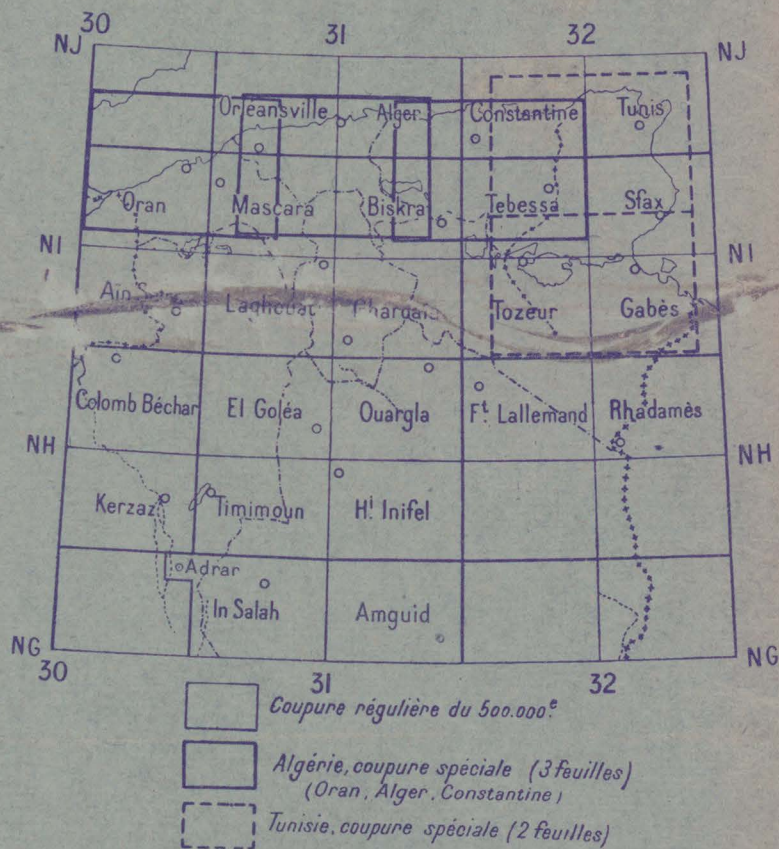 30 31 32
NJ NJ
Orléansville Alger Constantine Tunis
Oran Mascara Biskra Tebessa Sfax
NI NI
Laghouat Ghardaïa Tozeur Gabès
Colomb Béchar El Goléa Ouargla Ft Lallemand Rhadamès
NH NH
Kerzaz Timimoun Hi Inifel
Adrar
In Salah Amguid
NG NG
30 31 32
Coupure régulière du 500.000e
Algérie, coupure spéciale (3 feuilles)
(Oran, Alger, Constantine)
Tunisie, coupure spéciale (2 feuilles)